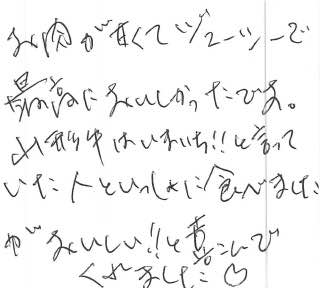 お肉が甘くてジューシーで
最高においしかったです。
山形牛はいまいち!!と言って
いた人といっしょに食べました
がおいしい!!と喜こんで
くれました♡